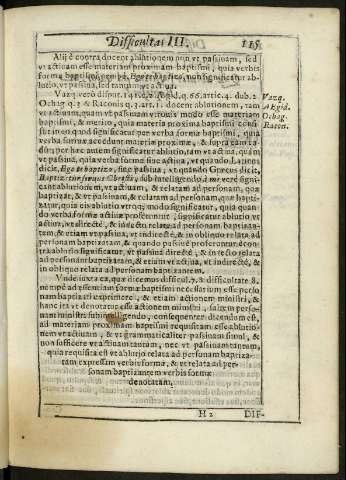 Difficultas III. 115
Alij è contra docent ablutionem non vt passiuam, sed
vt actiuam esse materiam proximam baptismi, quia verbis
formæ baptismi, nempè, Ego te baptizo, non significatur ab-
lutio, vt passiua, sed tantùm vt actiua.
Vazq. verò disput. 141. c. 2. Ægid. q. 66. artic. 4. dub. 2.
Ochag. q. 2. & Raconis q. 2. art. 1. docent ablutionem, tam
vt actiuam, quàm vt passiuam vtroq; modo esse materiam
baptismi, & meritò, quia materia proxima baptismi consi-
stit in eo quod significatur per verba formæ baptismi, quia
verba formæ accedunt materiæ proximæ, & tam con-
; per hæc autem significatur ablutio, tam vt actiua, quàm
vt passiua, quia verba formæ siue actiua, vt quando Latinus
dicit, Ego te baptizo, siue passiua, vt quando Græcus dicit,
Baptizetur seruus Christi, sub intelligendo à me verè signifi-
cant ablutionem, vt actiuam, & relatam ad personam, quæ
baptizat, & vt passiuam, & relatam ad personam, quæ bapti-
zatur, quia eis ablutio vtroq; modo significatur, quia quan-
do verba formæ actiuæ proferuntur, significatur ablutio vt
actiua, vt directè, & indirectè relata ad personam baptizan-
tem, & etiam vt passiua, vt indirectè, & in obliquo relata ad
personam baptizatam, & quando passiuè proferuntur, è con-
trà ablutio significatur, vt passiua directè, & in recto relata
ad personam baptizatam, & etiam vt actiua, vt indirectè, &
in obliquo relata ad personam baptizantem.
Vnde iuxta ea, quæ dicemus difficul. 7. & difficultate 8.
nempè ad essentiam formæ baptismi necessarium esse perso-
nam baptizati exprimere, & etiam actionem ministri, &
hanc ita vt denotetur esse actionem ministri, saltem perso-
nam ministri subintelligendo, consequenter dicendum est,
ad materiam proximam baptismi requisitam esse ablutio-
nem vt actiuam, & vt grammaticaliter passiuam simul, &
non sufficere vt actiuam tantùm, nec vt passiuam tantùm,
quia requisita est vt ablutio relata ad personam baptiza-
tam expressam verbis formæ, & vt relata ad per-
sonam baptizantem verbis formæ
denotatam.
Vazq.
Ægid.
Ochag.
Racon.
H 2 DIF-